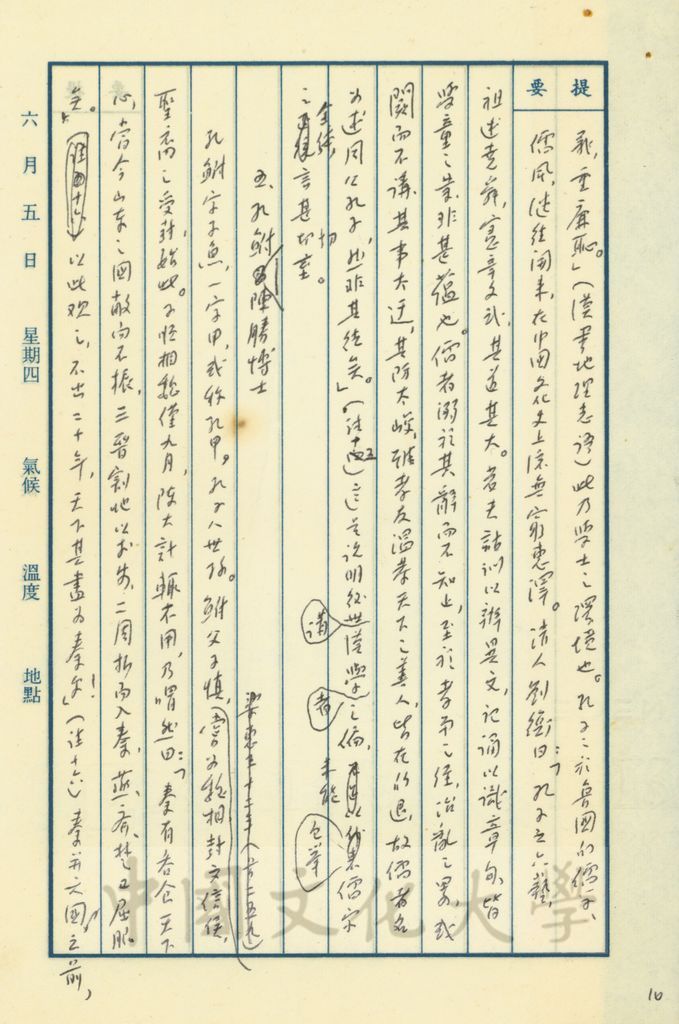 提要
義,重廉恥。」(漢書地理志語)此乃學士之環境也。孔子之於魯國的儒子、
儒風,繼往開來,在中國文化史上添無窮惠澤。清人劉衡曰:「孔子立六藝,
祖述堯舜,憲章文武,其道甚大。若夫詁訓以辨異文,記誦以識章句,皆
學童之業,非甚蘊也。儒者溺於其辭而不知止,至於孝弟之經,治亂之略,或
闕而不講,其事太迂,其防太峻,雖孝友溫恭天下之善人,皆在所退,故儒者名
為述周公孔子,然非其徒矣。」(註十五)這是說明經世漢學之偏,儒宗
諸
者
未能
包舉
之全體,言甚切至。
五、孔鮒陳勝博士
孔鮒字子魚,一字甲,或稱孔甲。孔子八世孫。鮒父子慎,嘗為魏相封文信侯,
梁惠王十二年(前二五九)
聖裔之受封始此。子慎相魏僅九月,陳大計輒不用,乃喟然曰:「秦有吞食天下
心,當今山東之國敝而不振,三晉割地以求安,二周折而入秦,燕、齊、楚已屈服
矣。以此觀之,不出二十年,天下其盡為秦乎!」(註十六)秦并六國之前,
六月五日 星期四 氣候 溫度 地點
中國文化大學
10